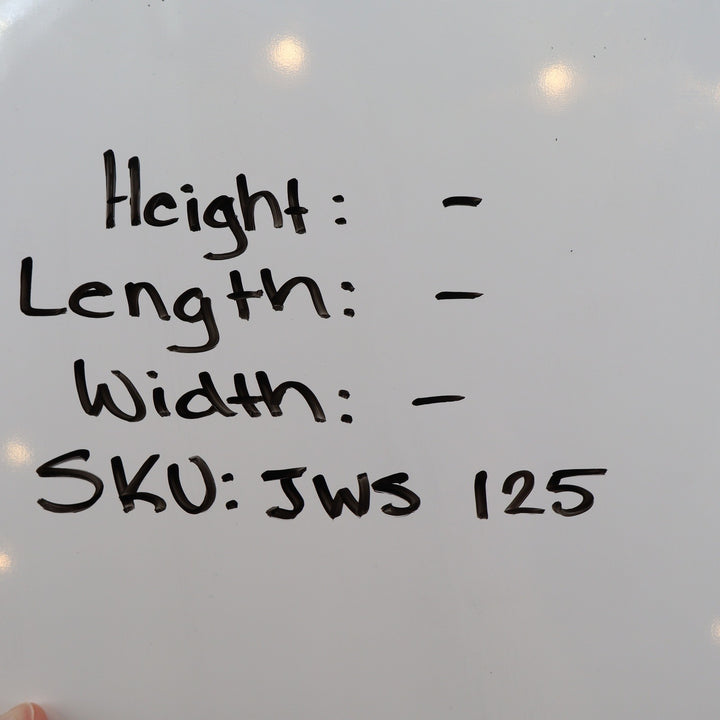 Height: -
Length: -
Width: -
SKU: JWS 125